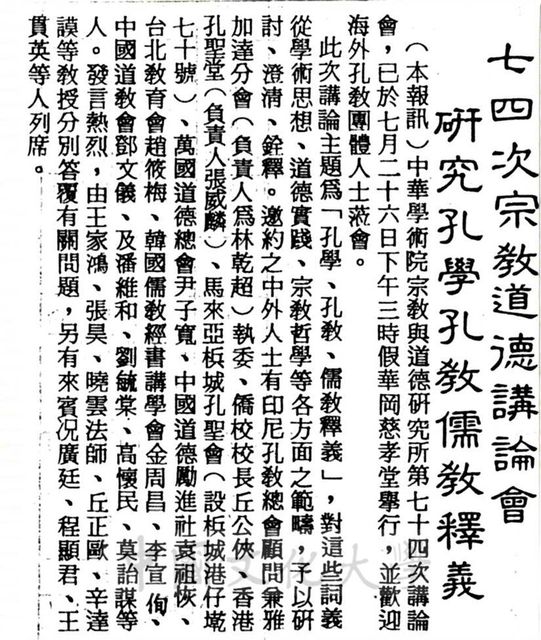 七四次宗教道德講論會
研究孔學孔教儒教釋義
（本報訊）中華學術院宗教與道德研究所第七十四次講論
會，已於七月二十六日下午三時假華岡慈孝堂舉行，並歡迎
海外孔教團體人士蒞會。
此次講論主題為「孔學、孔教、儒教釋義」，對這些詞義
從學術思想、道德實踐、宗教哲學等各方面之範疇，予以研
討、澄清、銓釋。邀約之中外人士有印尼孔教總會顧問兼雅
加達分會（負責人為林乾超）執委、僑校校長丘公俠、香港
孔聖堂（負責人張威麟）、馬來亞梹城孔聖會（設梹城港仔墘
七十號）、萬國道德總會尹子寬、中國道德勵進社袁祖恢、
台北教育會趙筱梅、韓國儒教經書講學會金周昌、李宣侚、
中國道教會鄧文儀、及潘維和、劉毓棠、高懷民、莫詒謀等
人。發言熱烈，由王家鴻、張昊、曉雲法師、丘正歐、辛達
謨等教授分別答覆有關問題，另有來賓況廣廷、程顯君、王
貫英等人列席。
中國文化大學